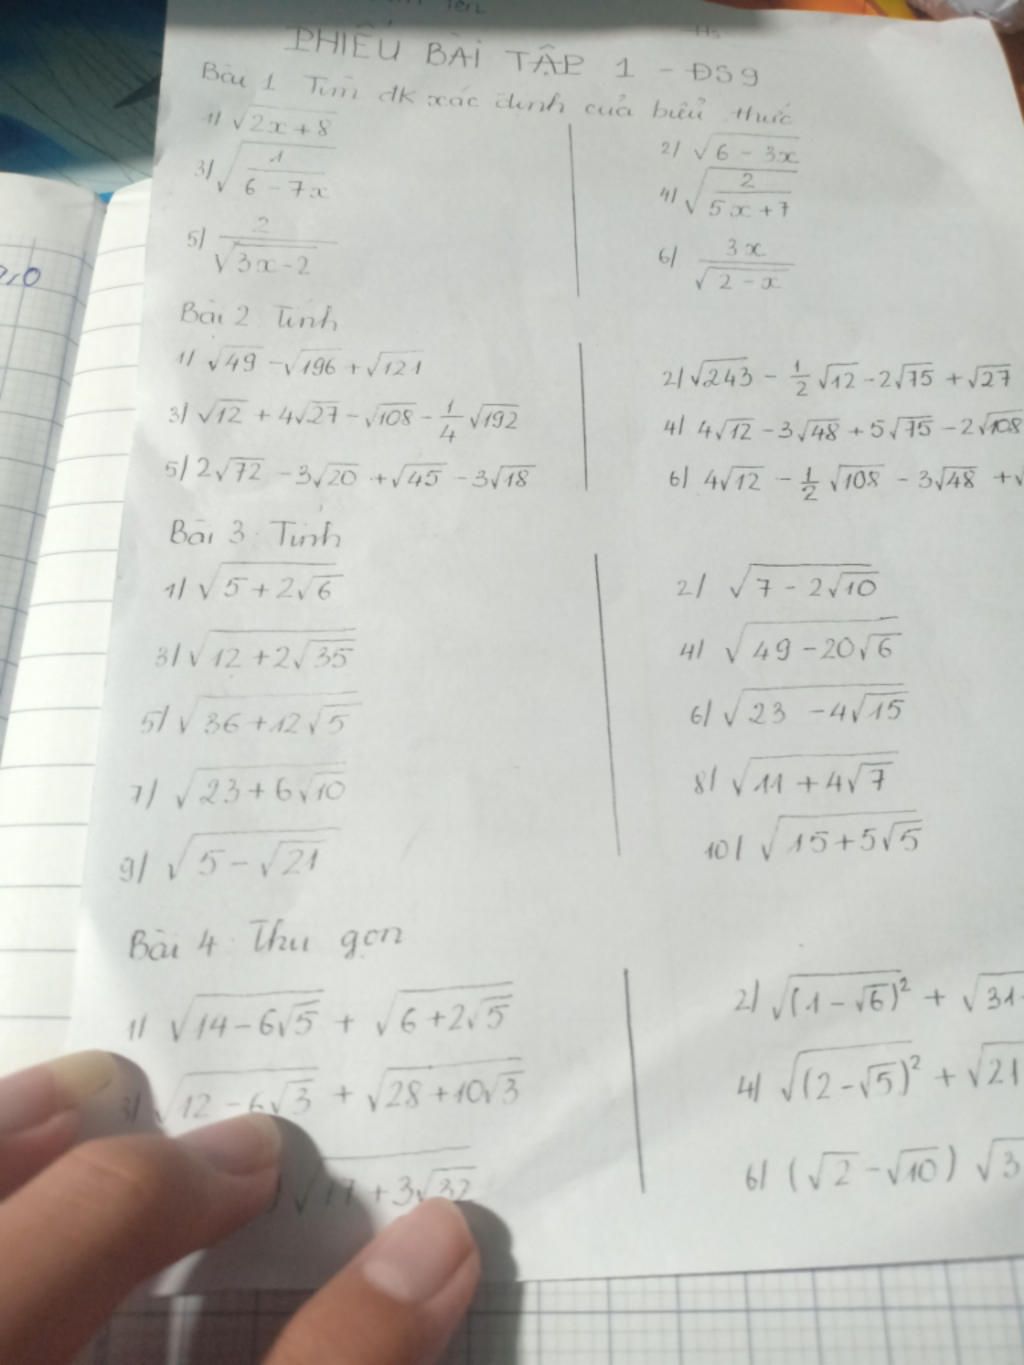 PHIẾU BÀI TẬP 1 - ĐS9
Bài 1 Tìm đk xác định của biểu thức
1/ √(2x+8)
2/ √(6-3x)
3/ √(1/(6-7x))
4/ √(2/(5x+7))
5/ 2/√(3x-2)
6/ 3x/√(2-x)
Bài 2 Tính
1/ √49 - √196 + √121
2/ √243 - 1/2 √12 - 2√75 + √27
3/ √12 + 4√27 - √108 - 1/4 √192
4/ 4√12 - 3√48 + 5√75 - 2√108
5/ 2√72 - 3√20 + √45 - 3√18
6/ 4√12 - 1/2 √108 - 3√48 + √
Bài 3: Tính
1/ √(5+2√6)
2/ √(7-2√10)
3/ √(12+2√35)
4/ √(49-20√6)
5/ √(36+12√5)
6/ √(23-4√15)
7/ √(23+6√10)
8/ √(11+4√7)
9/ √(5-√21)
10/ √(15+5√5)
Bài 4: Thu gọn
1/ √(14-6√5) + √(6+2√5)
2/ √((1-√6)²) + √31-
3/ √(12-6√3) + √(28+10√3)
4/ √((2-√5)²) + √21
√(17+3√32)
6/ (√2-√10) √3